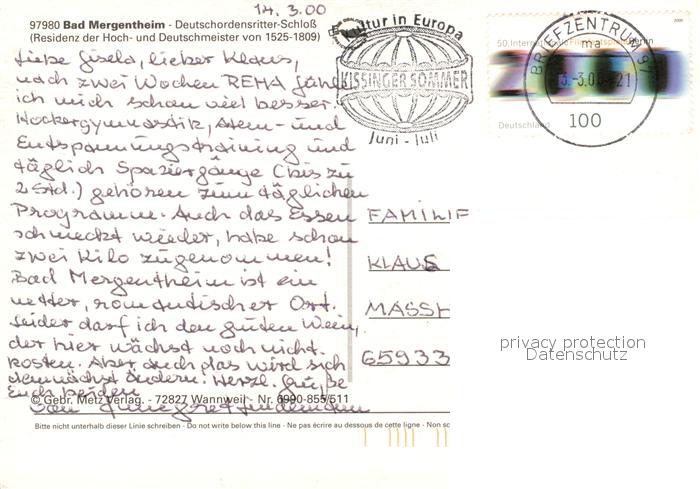 14.3.00
97980 Bad Mergentheim - Deutschordensritter-Schloß
(Residenz der Hoch- und Deutschmeister von 1525-1809)
Liebe Gisela, lieber Klaus,
nach zwei Wochen REHA fühle
ich mich schon viel besser.
Hockergymnastik, Atem- und
Entspannungstraining und
täglich Spaziergänge (bis zu
2 Std.) gehören zum täglichen
Programm. Auch das Essen
schmeckt wieder, habe schon
zwei Kilo zugenommen!
Bad Mergentheim ist ein
netter, romantischer Ort.
Leider darf ich den guten Wein,
der hier wächst noch nicht
kosten. Aber auch das wird sich
demnächst ändern. Herzl. Grüße
Euch beiden
von
© Gebr. Metz Verlag - 72827 Wannweil - Nr. 6990-855/511
Bitte nicht unterhalb dieser Linie schreiben - Do not write below this line - Ne pas écrire au dessous de cette ligne - Non sc
Kultur in Europa
KISSINGER SOMMER
Juni - Juli
50. Internationale Filmfestspiele Berlin
2000
Deutschland
100
BRIEFZENTRUM 97
ma
3.00-21
FAMILIE
KLAUS
MASSH
65933
privacy protection
Datenschutz